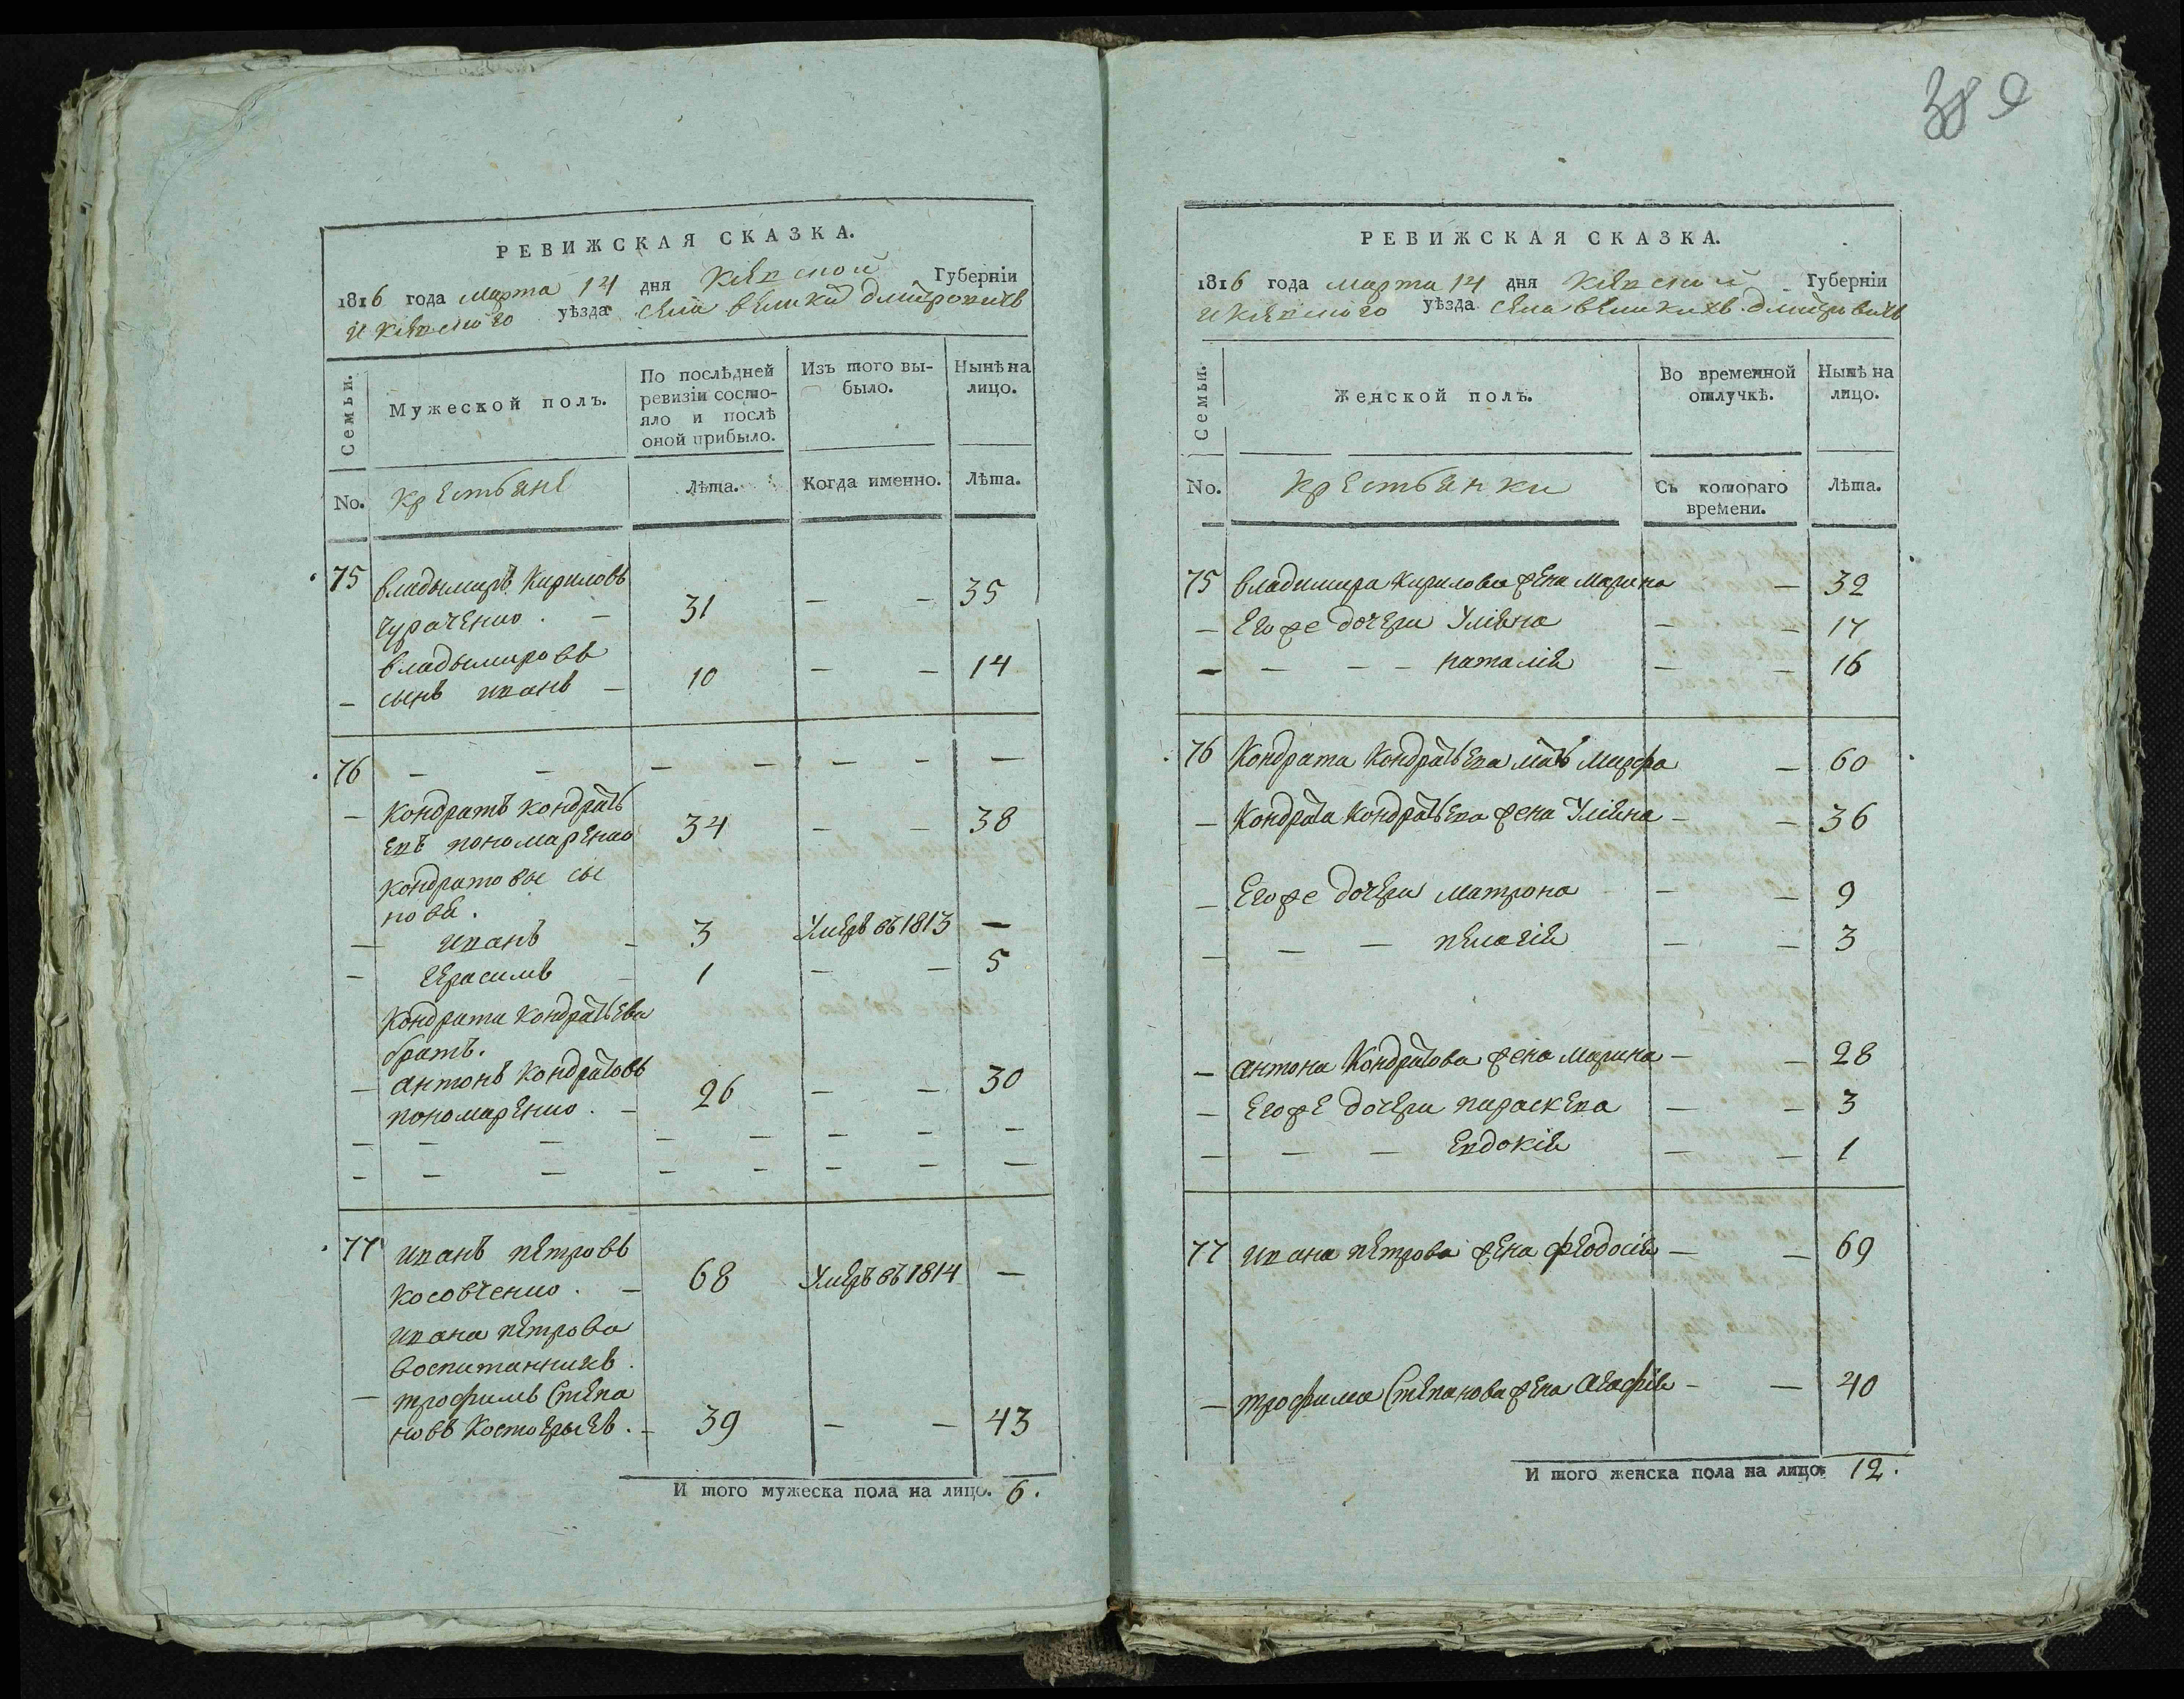 РЕВИЖСКАЯ СКАЗКА.
1816 года марта 14 дня Кіевской Губерніи
и Кіевского уѣзда села великих дмитровичь
Семьи.
Мужеской полъ.
По послѣдней
ревизіи состо-
яло и послѣ
оной прибыло.
Изъ того вы-
было.
Нынѣ на
лицо.
No.
Крестьяне
Лѣта.
Когда именно.
Лѣта.
75 владымиръ Кириловъ
Чураченко. — 31 — — 35
владымировъ
— сынъ иванъ — 10 — — 14
76 — — — — — — —
— Кондратъ кондрать
евъ пономаренко 34 — — 38
кондратовые сы
новя.
— иванъ — 3 Умеръ въ 1813 —
— Герасимъ — 1 — — 5
Кондрата кондратьева
братъ.
— антонъ кондратовъ
пономаренко. — 26 — — 30
— — — — — — — —
— — — — — — — —
77 иванъ петровъ
Косовченко. — 68 Умеръ въ 1814 —
ивана петрова
воспитанникъ.
— трофимъ Степа
новъ . — 39 — — 43
И того мужеска пола на лицо. 6.
380
РЕВИЖСКАЯ СКАЗКА.
1816 года марта 14 дня Кіевской Губерніи
и Кіевского уѣзда села великихъ дмитровичь
Семьи.
Женской полъ.
Во временной
отлучкѣ.
Нынѣ на
лицо.
No.
Крестьянки
Съ котораго
времени.
Лѣта.
75 владимира кирилова жена марина — 32
— Его же дочери Уліяна — — 17
— — — — наталія — — 16
76 Кондрата Кондратьева мать марфа — 60
— Кондрата кондратьева жена Уліяна — — 36
— Его же дочери матрона — — 9
— — — пелагія — — 3
— антона Кондратова жена марина — — 28
— Его же дочери параскева — — 3
— — — Евдокія — — 1
77 ивана петрова жена феодосія — — 69
— трофима Степанова жена Агафія — — 40
И того женска пола на лицо. 12.